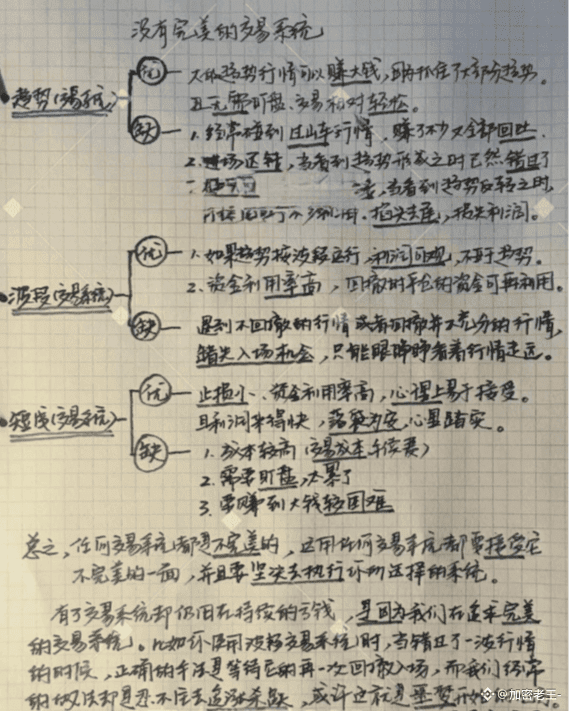 没有完美的交易系统
趋势(交易系统)
优
大的趋势行情可以赚大钱,能抓住大部分趋势。
且无需盯盘、交易相对轻松。
缺
1. 经常碰到过山车行情,赚了不少又全部回吐.
2. 进场迟钝,当看到趋势形成之时已然错过了
,当看到趋势反转之时,
损失利润。
波段(交易系统)
优
1. 如果趋势按波段运行,利润可观,不亚于趋势。
2、资金利用率高,回撤时平仓的资金可再利用。
缺
遇到不回撤的行情或者回撤并不充分的行情,
错失入场机会,只能眼睁睁看着行情走远。
短线(交易系统)
优
止损小、资金利用率高,心理上易于接受。
且利润来得快,落袋为安,心里踏实。
缺
1. 成本较高(交易成本手续费)
2. 需要盯盘,太累了
3. 要赚到大钱较困难
总之,任何交易系统都是不完美的,运用任何交易系统都要接受它
不完美的一面,并且要坚决去执行你所选择的系统。
有了交易系统却仍旧在持续的亏钱,是因为我们在追求完美
的交易系统。比如你使用波段交易系统时,当错过了一波行情
的时候,正确的手法是等待它的再一次回撤入场,而我们经常
的做法却是忍不住去追涨杀跌,或许这就是噩梦开始
@加密老王-